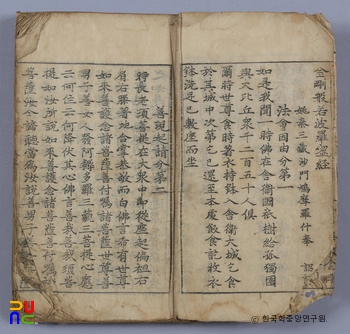 金剛般若波羅蜜經
姚秦三藏沙門鳩摩羅什奉 詔
法會因由分第一
如是我聞一時佛在舍衛國祇樹給孤獨園
與大比丘衆千二百五十人俱
爾時世尊食時著衣持鉢入舍衛大城乞食
於其城中次第乞已還至本處飯食訖收衣
鉢洗足已敷座而坐
善現起請分第二
時長老須菩提在大衆中卽從座起偏袒右
肩右膝著地合掌恭敬而白佛言希有世尊
如來善護念諸菩薩善付囑諸菩薩世尊善
男子善女人發阿耨多羅三藐三菩提心應
云何住云何降伏其心佛言善哉善哉須菩
提如汝所說如來善護念諸菩薩善付囑諸
菩薩汝今諦聽當爲汝說善男子善女人
ⓒ 한국학중앙연구원